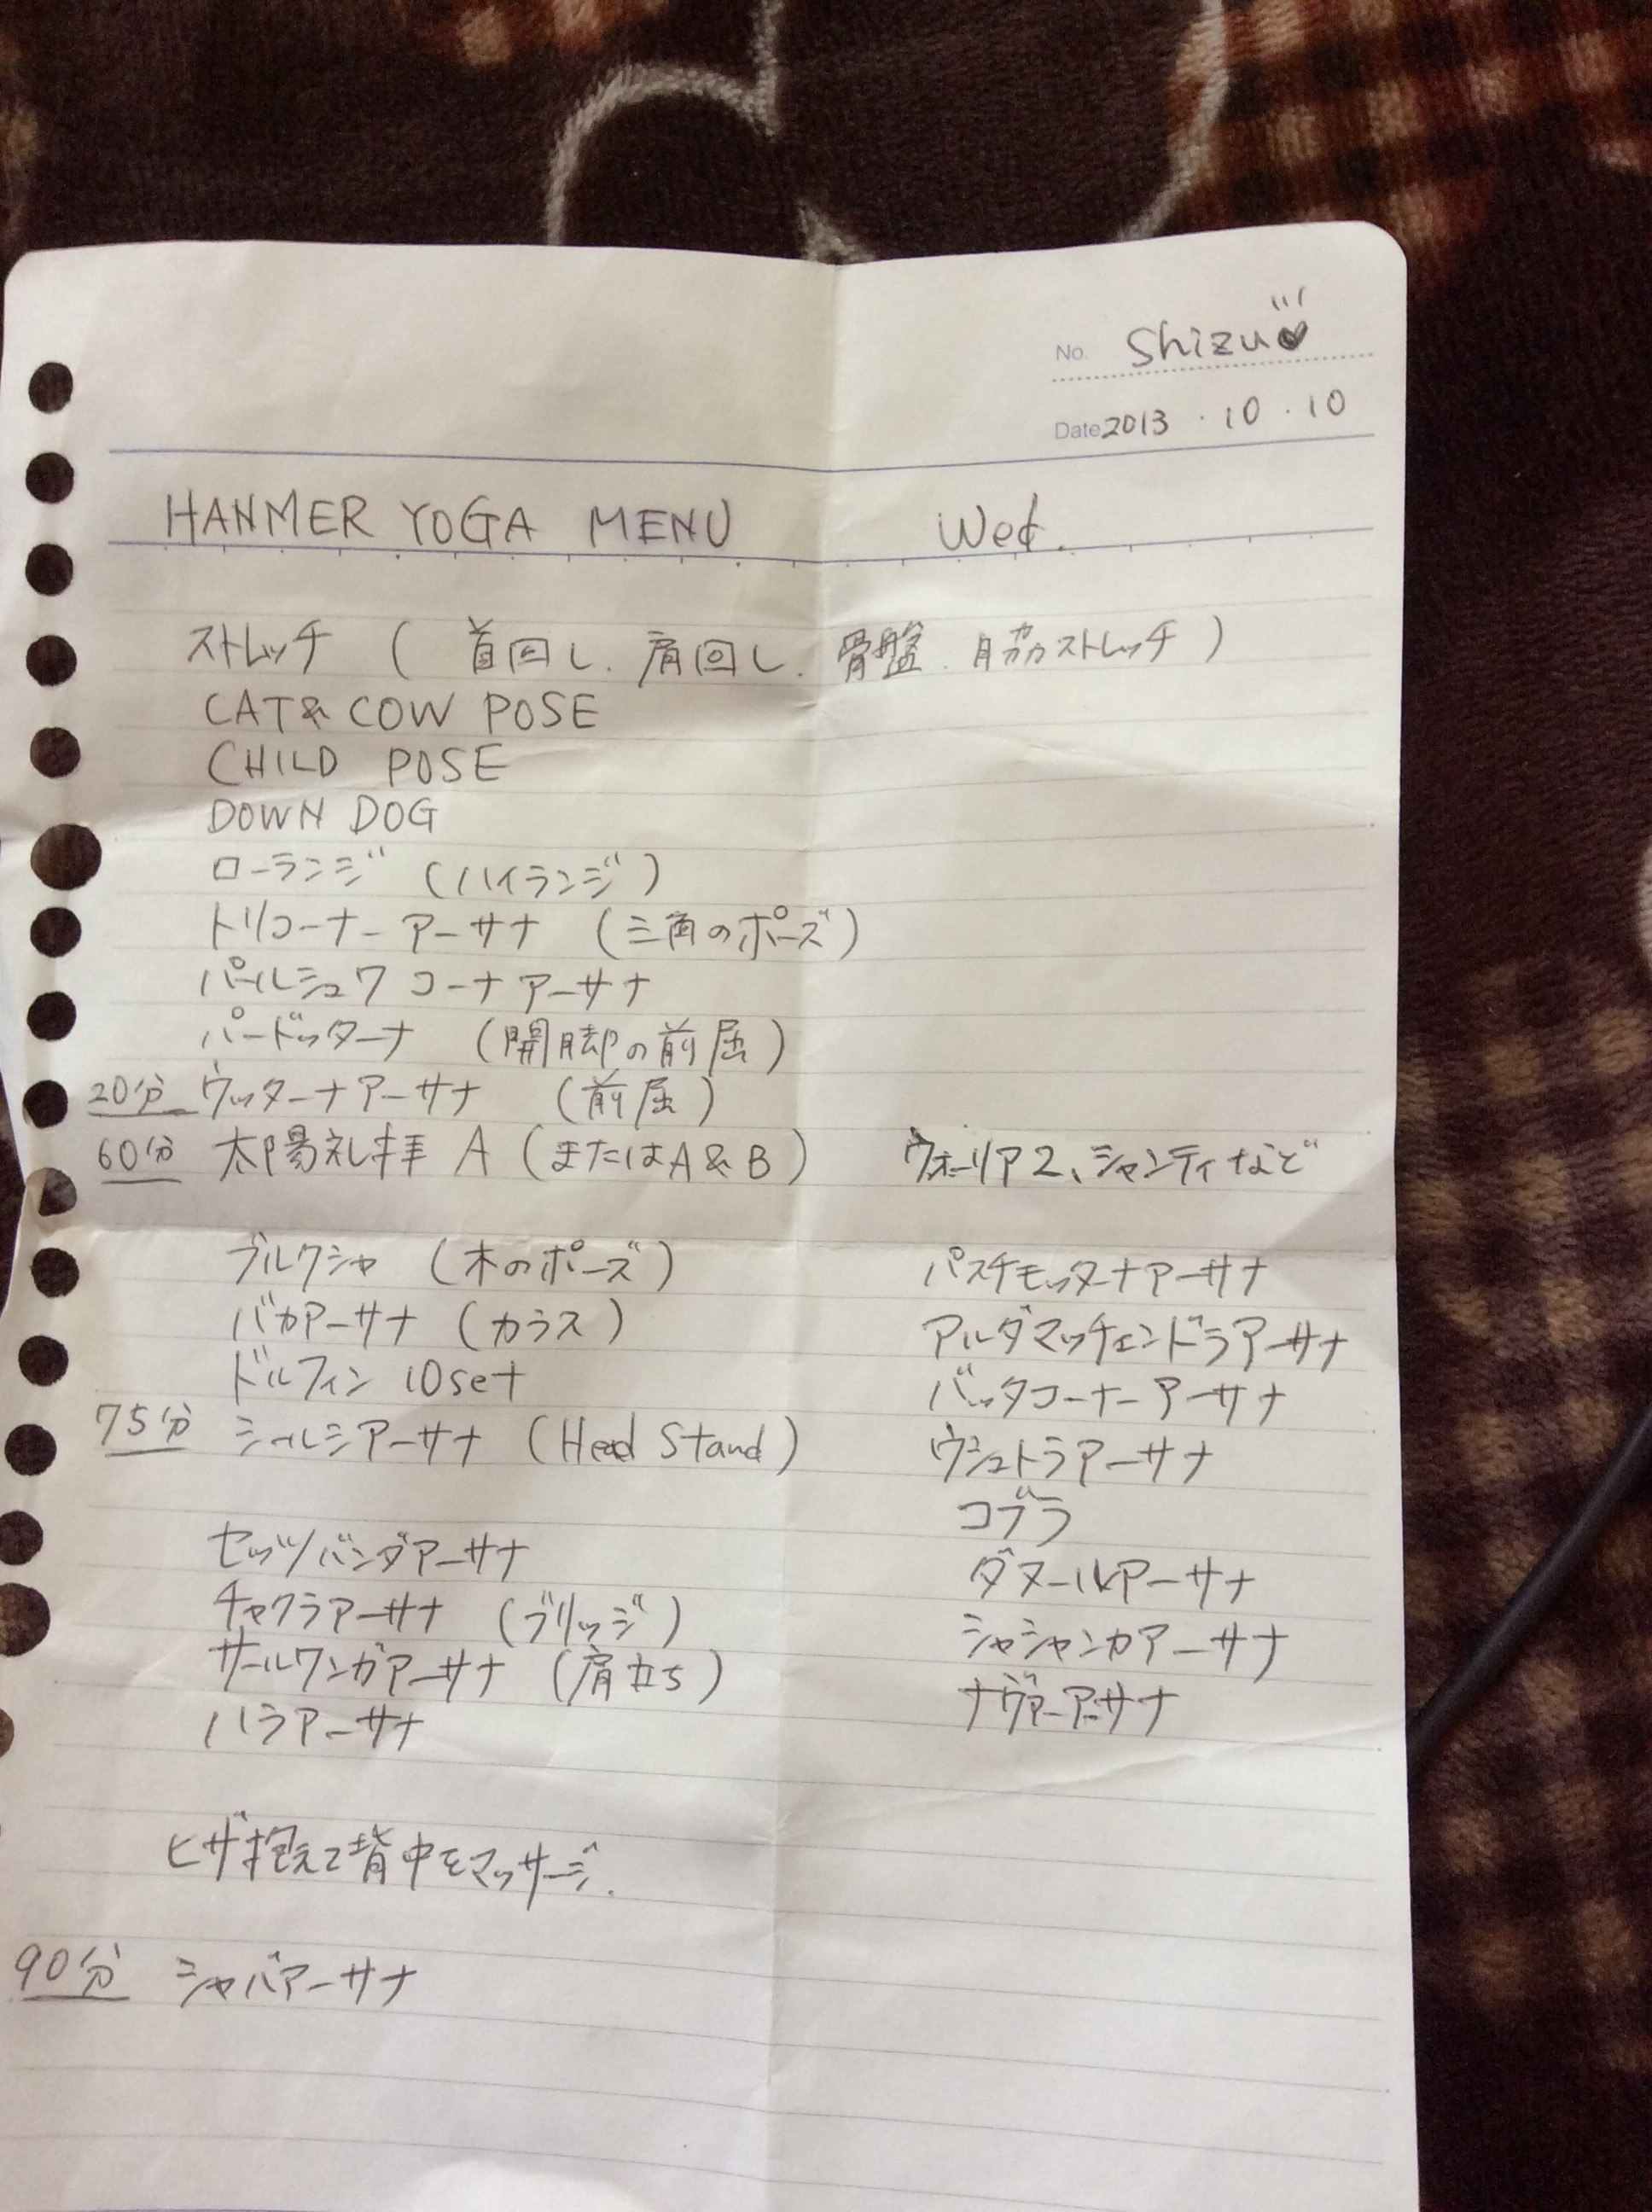 No. Shizu
Date 2013 . 10 . 10
HANMER YOGA MENU Wed.
ストレッチ ( 首回し. 肩回し. 骨盤. 月カカストレッチ )
CAT & COW POSE
CHILD POSE
DOWN DOG
ローランジ (ハイランジ)
トリコーナーアーサナ (三角のポーズ)
パールシュワコーナアーサナ
パードッターナ (開脚の前屈)
20分 ウッターナアーサナ (前屈)
60分 太陽礼拝 A (またはA&B) ウォーリア2、シャンティなど
ブルクシャ (木のポーズ)
バカアーサナ (カラス)
ドルフィン 10set
75分 シールシアーサナ (Head Stand)
パスチモッターナアーサナ
アルダマッチェンドラアーサナ
バッタコーナーアーサナ
ウシュトラアーサナ
コブラ
ダヌールアーサナ
シャシャンカアーサナ
ナヴァーアーサナ
セッツバンダアーサナ
チャクラアーサナ (ブリッジ)
サールワンガアーサナ (肩立ち)
ハラアーサナ
ヒザ抱えて背中をマッサージ.
90分 シャバアーサナ